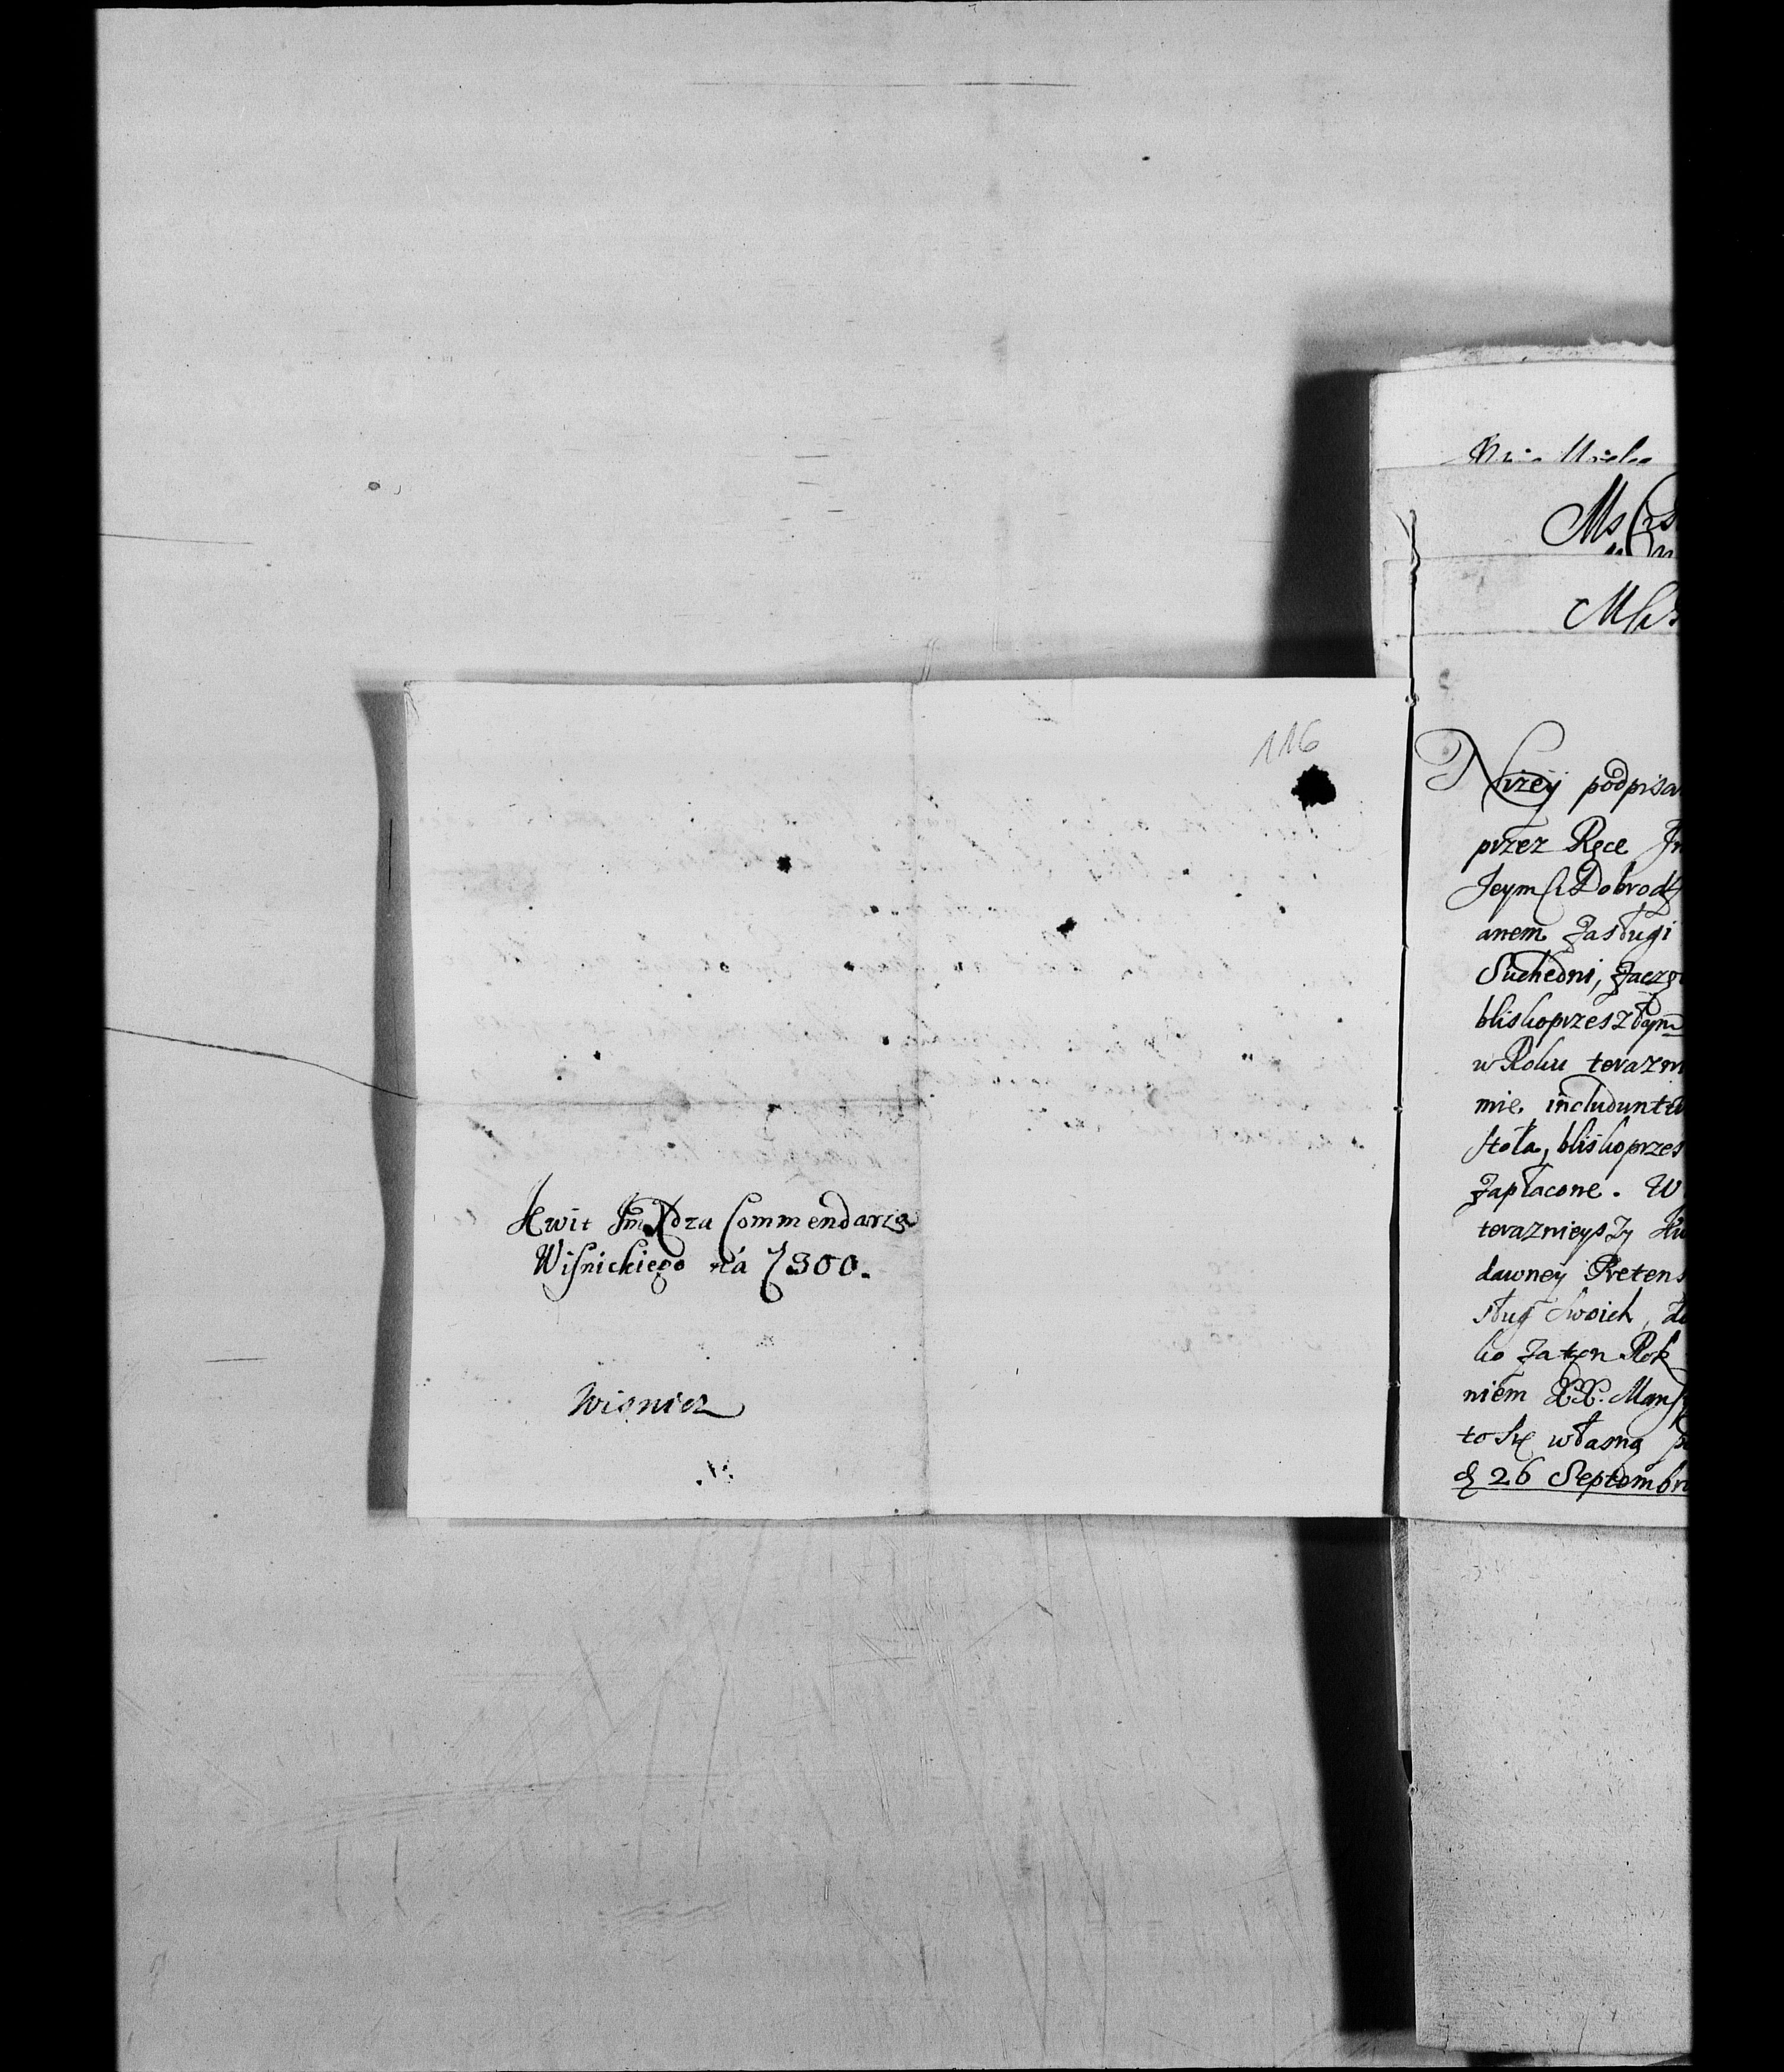 116
Kwit JmXdza Commendarza
Wiśnickiego ná f 300.
Wisnicz
Niżey podpisa
przez Ręce
JeymśćDobrodz
anem Zasługi
Suchedni,
bliskoprzeszłym
w Roku terazn
mie includunt
stoła, bliskoprzes
Zapłacone. W
teraznieyszy
dawney Pretens
sług Swoich,
ko Za ten Rok
niem XX. Mans
to Się własną
d 26 Septembr